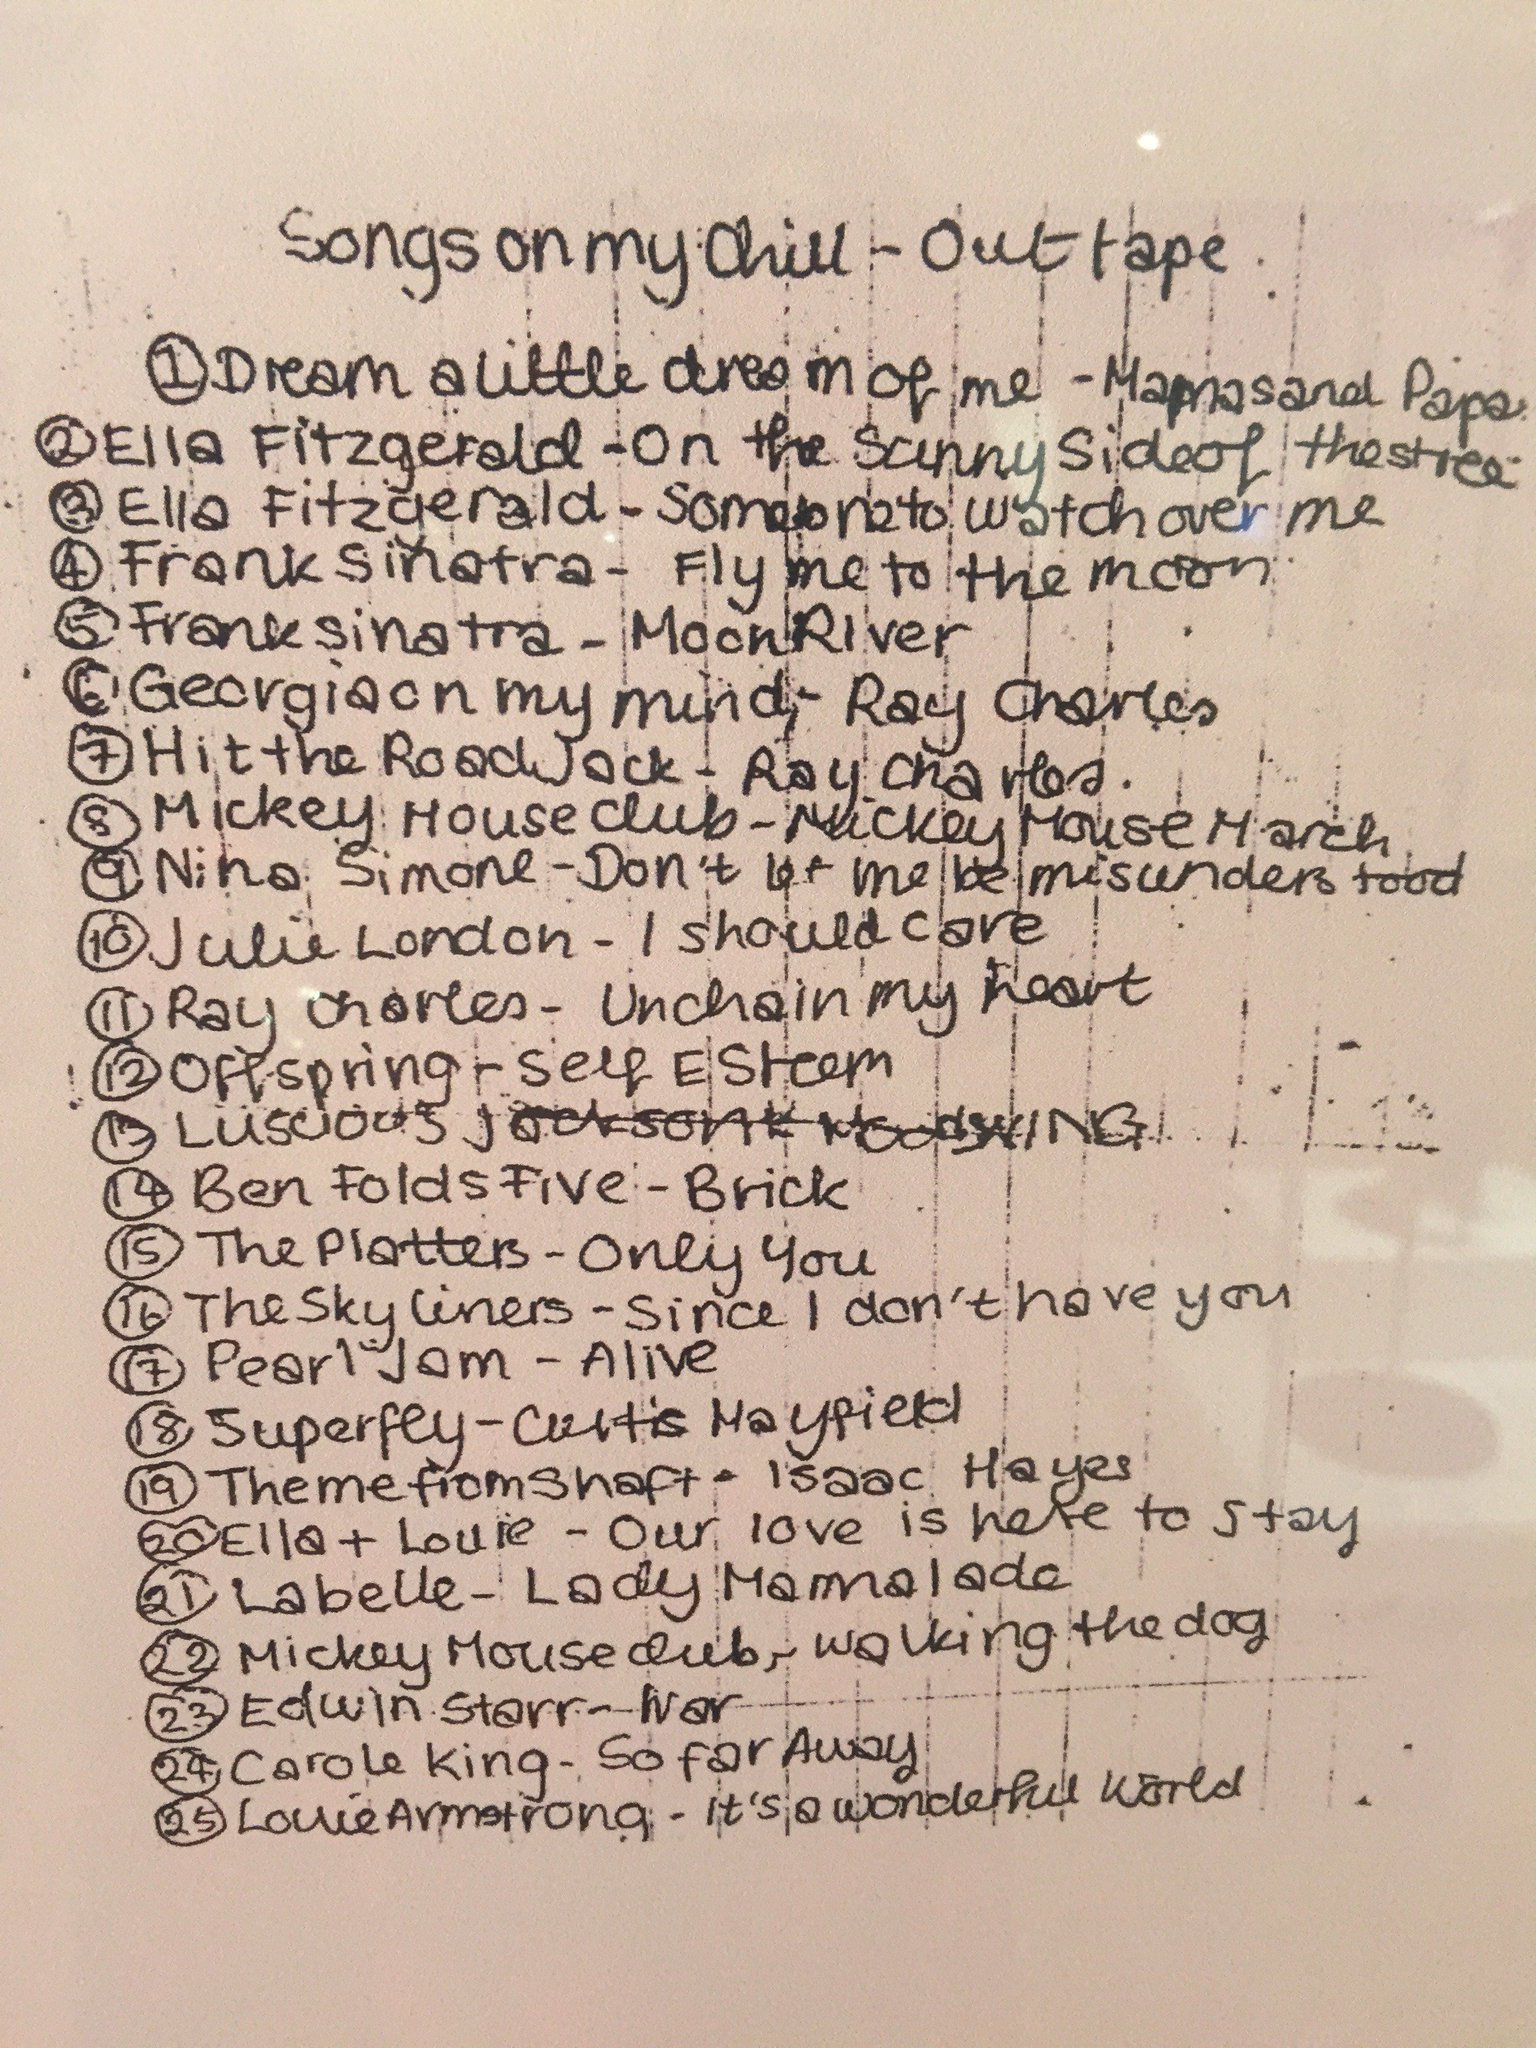 Songs on my Chill-Out tape.
① Dream a little dream of me - Mamas and Papas
② Ella Fitzgerald - On the Sunny Side of the stree
③ Ella Fitzgerald - Someone to watch over me
④ Frank Sinatra - Fly me to the moon
⑤ Frank sinatra - Moon River
⑥ Georgia on my mind, - Ray Charles
⑦ Hit the Road Jack - Ray Charles.
⑧ Mickey Mouse Club - Mickey Mouse March
⑨ Nina Simone - Don't let me be misunderstood
⑩ Julie London - I should care
⑪ Ray Charles - Unchain my heart
⑫ Offspring - Self ESteem
⑬ Luscious Jackson MoodSWING
⑭ Ben Folds Five - Brick
⑮ The Platters - Only You
⑯ The Sky liners - Since I don't have you
⑰ Pearl Jam - Alive
⑱ Superfly - Curtis Mayfield
⑲ Theme from Shaft - Isaac Hayes
⑳ Ella + Louie - Our love is here to stay
㉑ Labelle - Lady Marmalade
㉒ Mickey Mouse club, - walking the dog
㉓ Edwin Starr - War
㉔ Carole King - So far Away
㉕ Louie Armstrong - It's a wonderful World